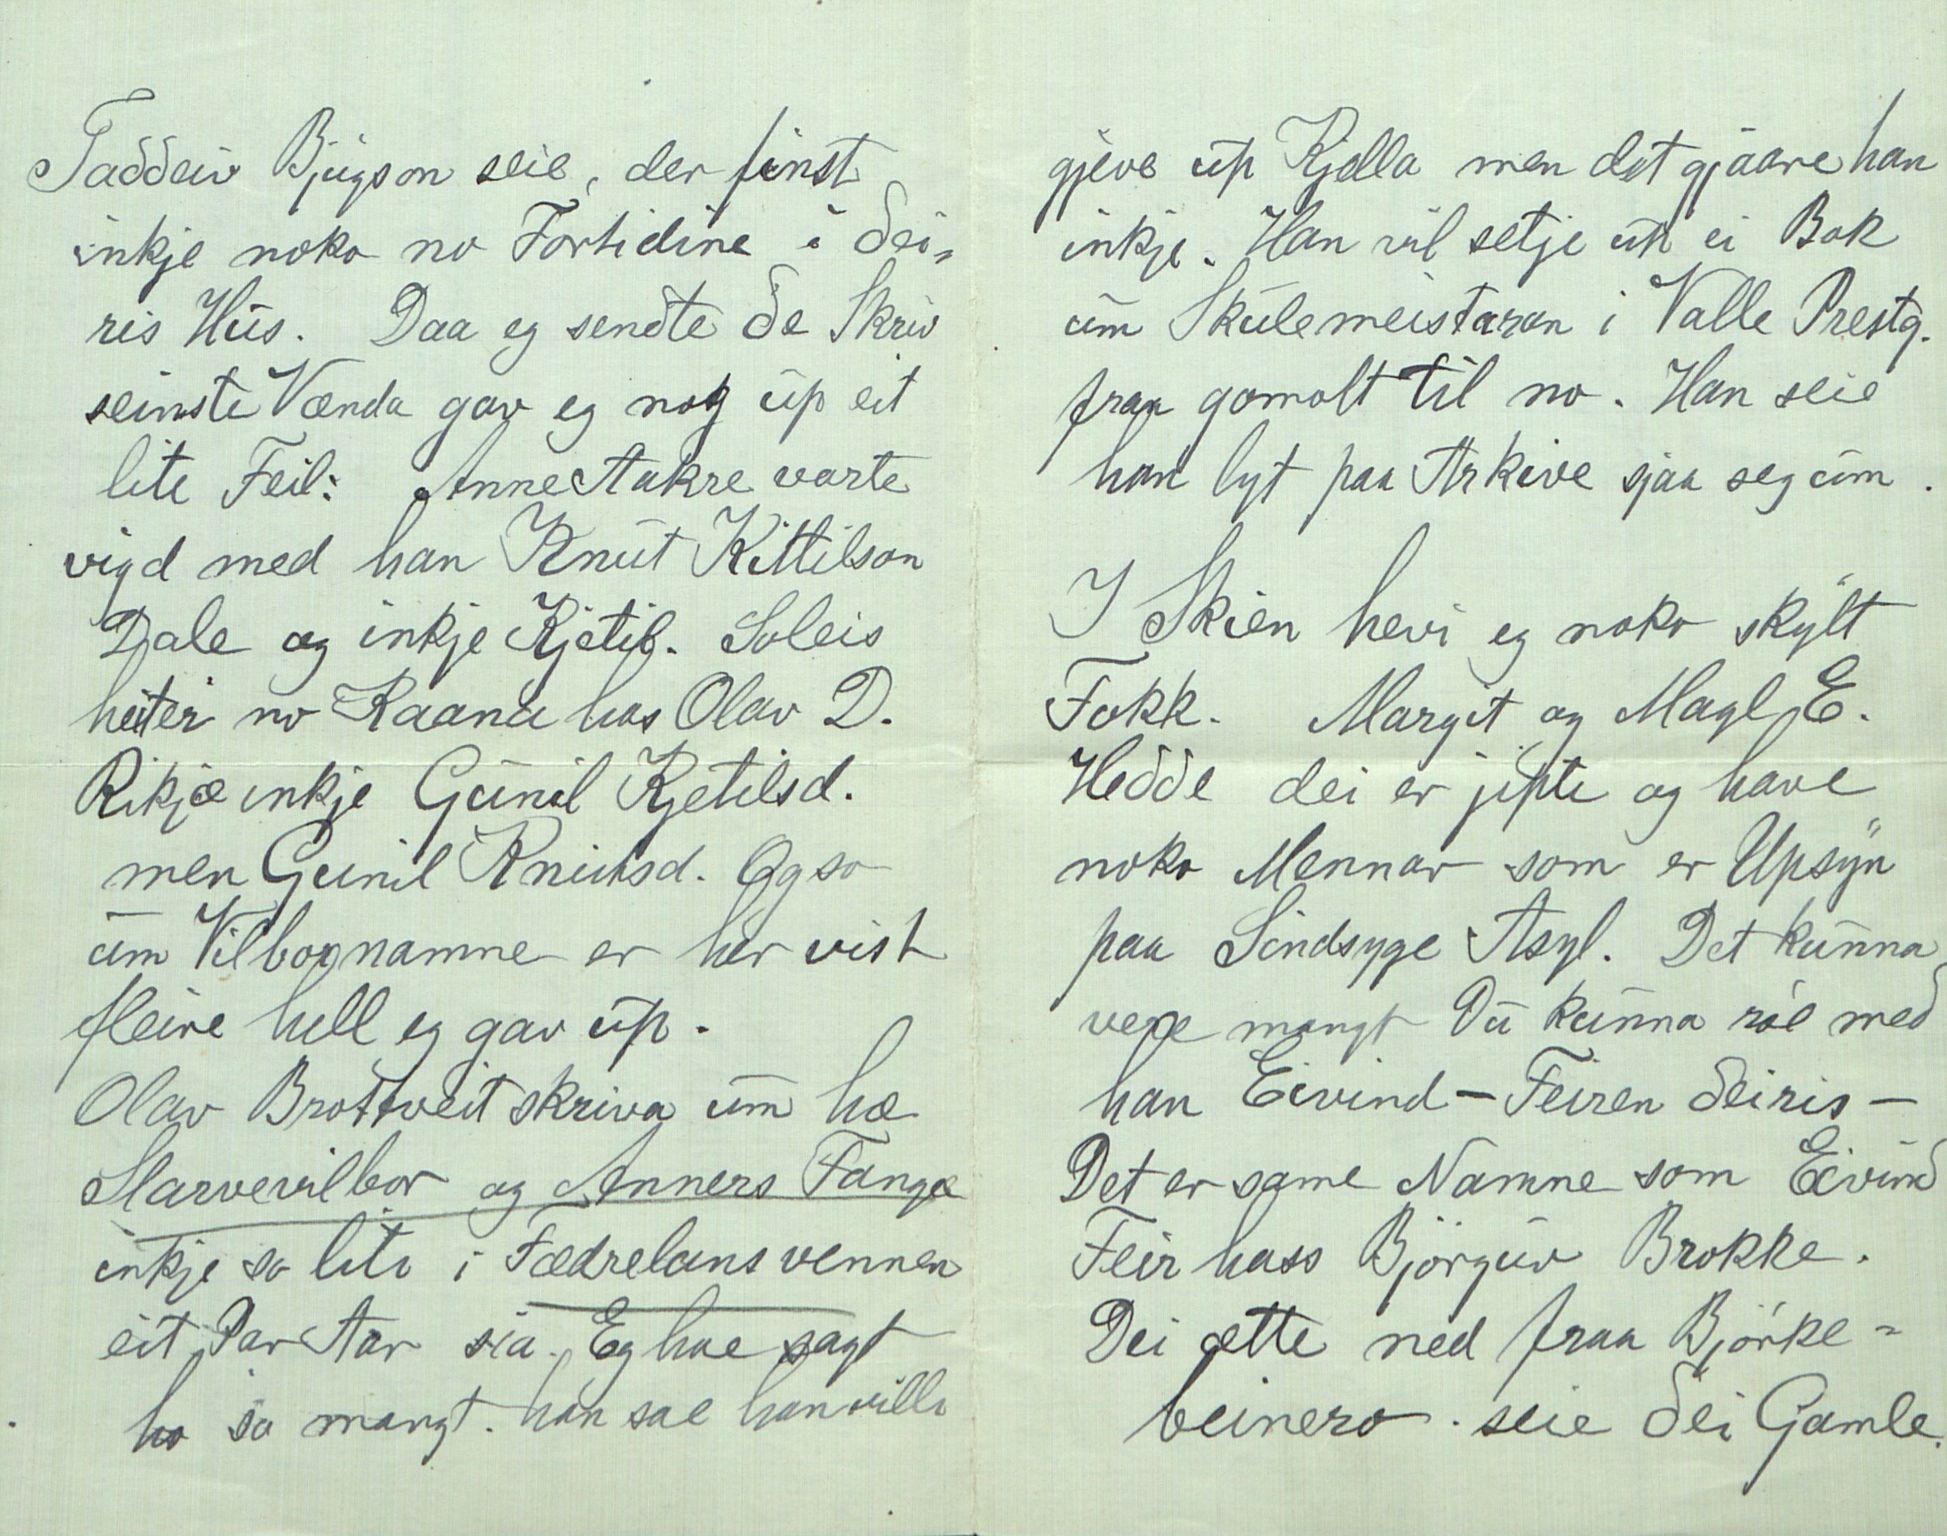 Taddeiv Bjugson seie, der finst
inkje noko no Fortidine i dei=
ris Hus. Daa eg sendte de Skriv
seinste Vænda gav eg nog up eit
lite Feil: Anne Aakre varte
vigd med han Knut Kittilson
Dale og inkje Kjetil. Soleis
heiter no Kaana has Olav D.
Rikjæ inkje Gunil Kjetilsd.
men Gunil Knutsd. Og so
um Vilbognamne er her vist
fleire hell eg gav up.
Olav Brottveit skriva um hæ
Slarvevilbor og Anners Fange
inkje so lite i Fædrelansvennen
eit Par Aar sia. Eg hae sagt
ho so mangt. han sae han ville
gjeve up Kjella men det gjaare han
inkje. Han vil setje ut ei Bok
um Skulemeistaran i Valle Prestg.
fraa gamalt til no. Han seie
han lyt paa Arkive sjaa seg um.
I Skien hevi eg noko skylt
Fokk. Margit og Magl. E.
Hedde dei er jipte og have
noko Mennar som er Upsyn
paa Sindsyge Asyl. Det kunna
vere mangt Du kunna røe med
han Eivind - Feiren deiris -
Det er same Namne som Eivind
Feir hass Björguv Brokke.
Dei ætte ned fraa Björke=
beinero. seie dei Gamle.